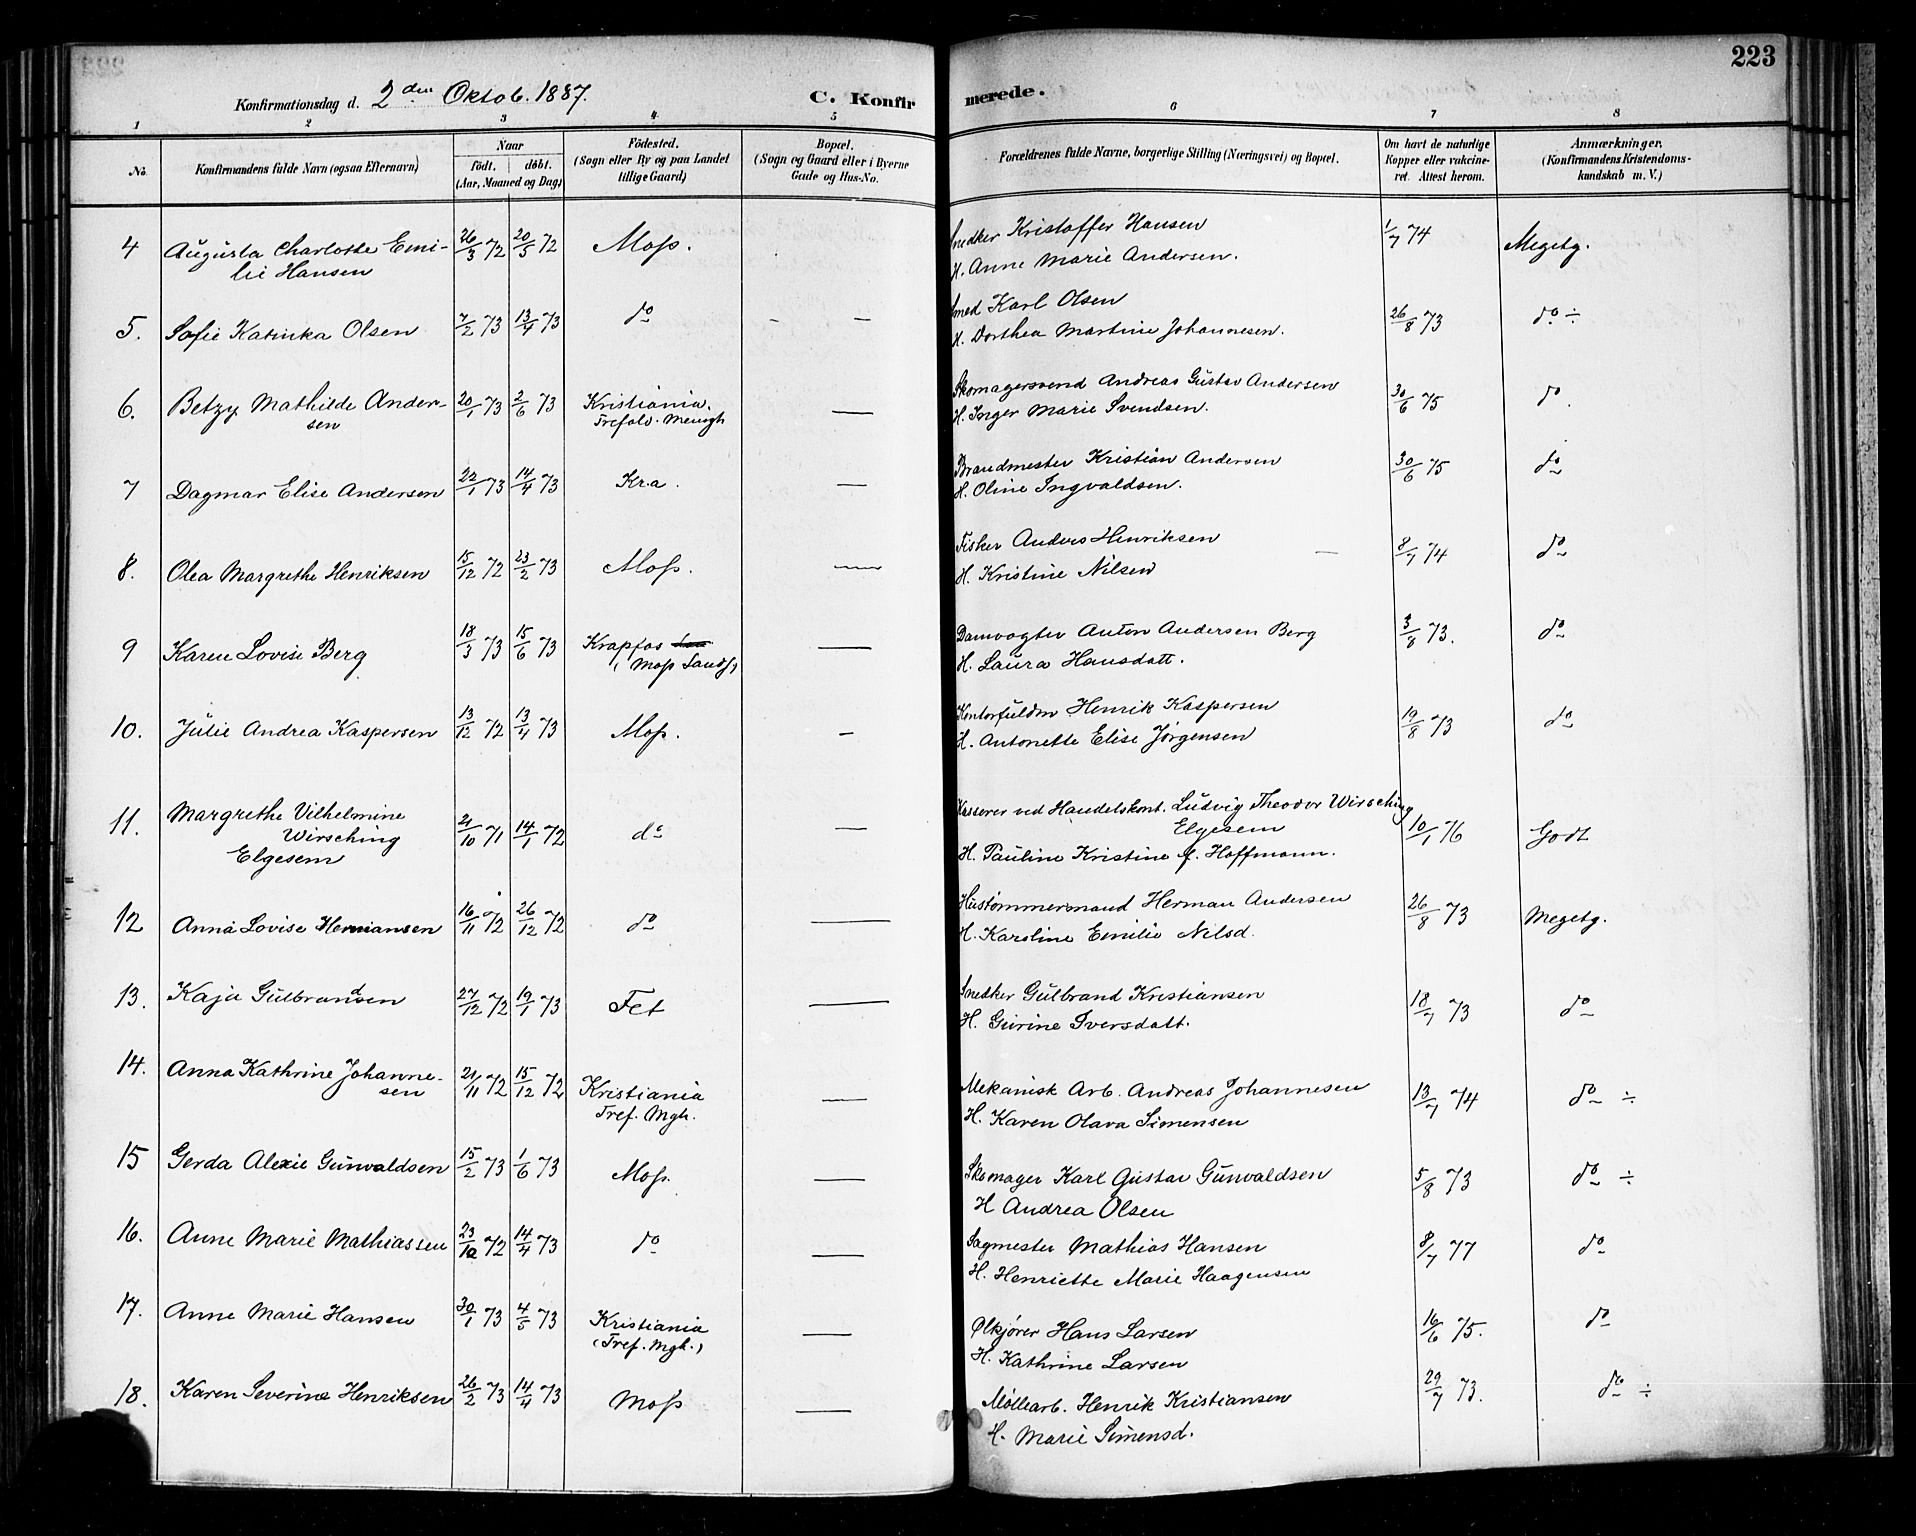 223
Konfirmationsdag d. 2den Oktob. 1887.
C. Konfirmerede.
1 2 3 4 5 6 7 8
No. Konfirmandens fulde Navn (ogsaa Efternavn)
Naar
født. døbt.
(Aar, Maaned og Dag)
Fødested.
(Sogn eller By og paa Landet
tillige Gaard)
Bopæl.
(Sogn og Gaard eller i Byerne
Gade og Hus-No.
Forældrenes fulde Navne, borgerlige Stilling (Næringsvei) og Bopæl.
Om havt de naturlige
Kopper eller vakcine-
ret. Attest herom.
Anmærkninger.
(Konfirmandens Kristendoms-
kundskab m. V.)
4 Augusta Charlotte Emi- 26/3 72 20/5 72 Moss. Snedker Kristoffer Hansen 1/7 74 Megetg.
lie Hansen H. Anne Marie Andersen.
5. Sofie Katinka Olsen 7/2 73 13/4 73 do - - Smed Karl Olsen 26/8 73 do ÷
H. Dorthea Martine Johannesen.
6. Betzy Mathilde Ander- 20/1 73 2/6 73 Kristiania. — Skomagersvend Andreas Gustav Andersen 30/6 75 do
sen Trefold. Menigh H. Inger Marie Svendsen.
7 Dagmar Elise Andersen 22/1 73 14/4 73 Kr.a. — Brandmester Kristian Andersen 30/6 75 do
H. Oline Ingvaldsen.
8. Olea Margrethe Henriksen 15/12 72 23/2 73 Moss. — Fisker Anders Henriksen — 8/7 74 do
H. Kristine Nilsen
9 Karen Lovise Berg 18/3 73 15/6 73 Krapfos — Damvogter Anton Andersen Berg 3/8 73. do
(Moss Lands) H. Laura Hansdatt.
10. Julie Andrea Kaspersen 13/12 72 13/4 73 Moss. — Kontorfuldm Henrik Kaspersen 19/8 73 do
H. Antonette Elise Jørgensen
11. Margrethe Vilhelmine 21/10 71 14/1 72 do — Kasserer ved Handelskont. Ludvig Theodor Wirsching 10/1 76 Godt
Wirsching Elgesem
Elgesem H. Pauline Kristine f. Hoffmann.
12 Anna Lovise Hermansen 16/11 72 26/12 72 do — Hustømmermand Herman Andersen 26/8 73 Megetg.
H. Karoline Emilie Nilsd.
13. Kaja Gulbrandsen 27/12 72 19/1 73 Fet — Snedker Gulbrand Kristiansen 18/7 73 do
H. Gurine Iversdatt.
14. Anna Kathrine Johanne- 21/11 72 15/12 72 Kristiania — Mekanisk Arb. Andreas Johannesen 13/7 74 do ÷
sen Tref. Mgh. H. Karen Olava Simensen
15 Gerda Alexie Gunvaldsen 15/2 73 1/6 73 Moss. — Skomager Karl Gustav Gunvaldsen 5/8 73 do ÷
H Andrea Olsen
16. Anne Marie Mathiassen 23/10 72 14/4 73 do — Sagmester Mathias Hansen 8/7 77 do
H. Henriette Marie Haagensen
17. Anne Marie Hansen 30/1 73 4/5 73 Kristiania — Ølkjører Hans Larsen 16/6 75. do
(Tref. Mgh.) H. Kathrine Larsen
18. Karen Severine Henriksen 26/2 73 14/4 73 Moss — Møllearb. Henrik Kristiansen 29/7 73. do ÷
H. Marie Simensd.